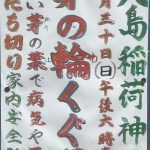 八島稲荷神
月三十日(日)午後六時
芽の輪くぐ
い芽の葉で病気や
たち切り家内安全